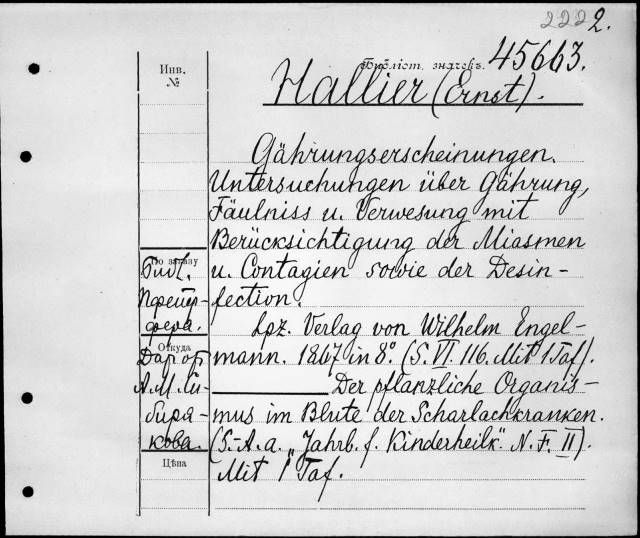 222 2.
Библіот. значекъ. 45663.
Инв.
№
Hallier (Ernst).
Gährungserscheinungen.
Untersuchungen über Gährung,
Fäulniss u. Verwesung mit
Berücksichtigung der Miasmen
u. Contagien sowie der Desin-
fection.
Lpz. Verlag von Wilhelm Engel-
mann. 1867 in 8º. (S. VI. 116. Mit 1 Taf).
Der pflanzliche Organis-
mus im Blute der Scharlachkranken.
(S.-A. a. „Jahrb. f. Kinderheilk." N. F. II).
Mit 1 Taf.
По заказу
Библ.
Пфейф-
фера.
Откуда
Дар от
А. М. Си-
биря-
кова.
Цѣна